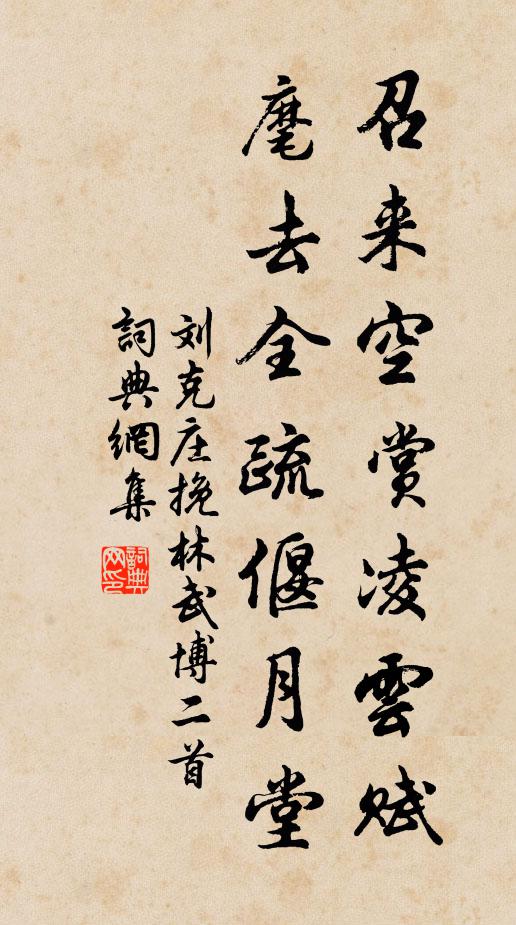 召来空赏凌雲赋
麾去全疏偃月堂
刘克庄挽林武博二首
詞典網集
詞典网印